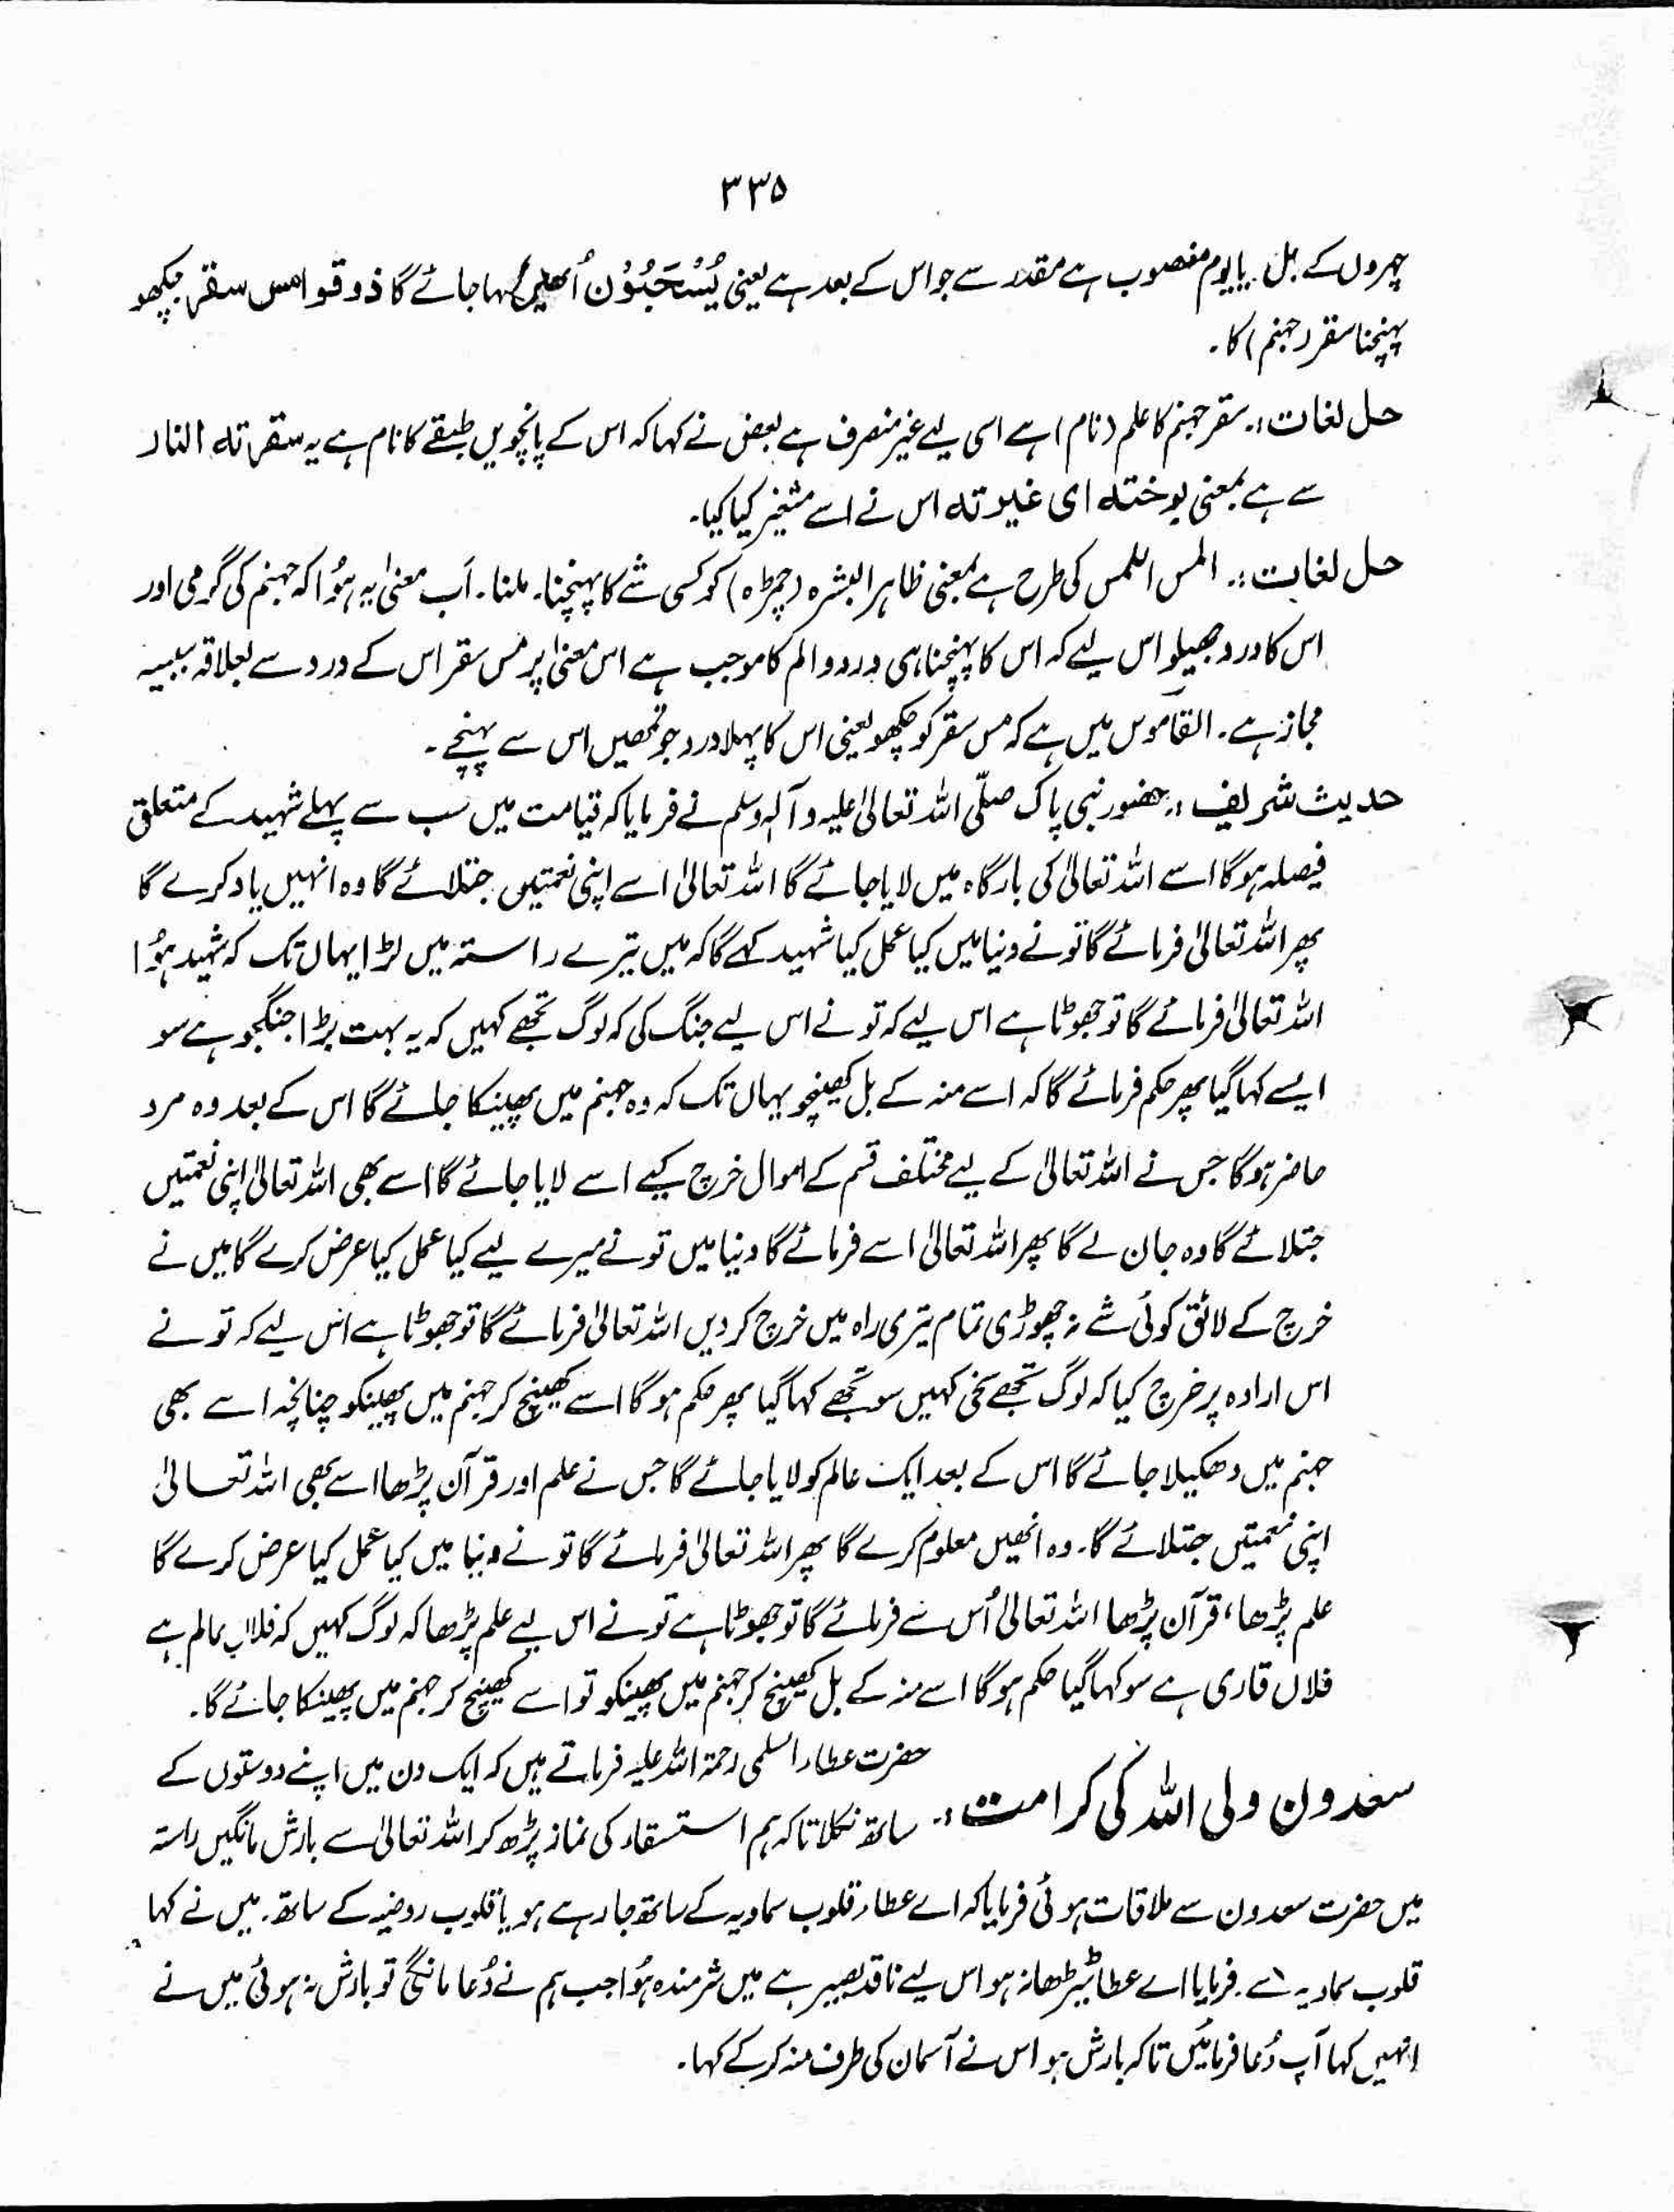 ۳۳۵
چہروں کے بل۔ یا یوم منصوب ہے مقدر سے جو اس کے بعد ہے یعنی یُسْحَبُوْن اُنھیں کہا جائے گا ذوقوا مس سقر چکھو
پہنچنا سقر (جہنم) کا۔
حل لغات :۔ سقر جہنم کا علم (نام) ہے اسی لیے غیر منصرف ہے بعض نے کہا کہ اس کے پانچویں طبقے کا نام ہے یہ سقرتہ النار
سے ہے بمعنی لوحتہ ای غیرتہ اس نے اسے متغیر کیا گیا۔
حل لغات :۔ المس اللمس کی طرح ہے بمعنی ظاہر البشرہ (چمڑہ) کو کسی شے کا پہنچنا۔ ملنا۔ اَب معنیٰ یہ ہُوا کہ جہنم کی گرمی اور
اس کا درد جھیلو اس لیے کہ اس کا پہنچنا ہی درد و الم کا موجب ہے اس معنیٰ پر مس سقر اس کے درد سے بعلاقہ سببیہ
مجاز ہے۔ القاموس میں ہے کہ مس سقر کو چکھو یعنی اس کا پہلا درد جو تمھیں اس سے پہنچے۔
حدیث شریف :۔ حضور نبی پاک صلّی اللہ تعالیٰ علیہ و آلہٖ وسلم نے فرمایا کہ قیامت میں سب سے پہلے شہید کے متعلق
فیصلہ ہوگا اسے اللہ تعالیٰ کی بارگاہ میں لایا جائے گا اللہ تعالیٰ اسے اپنی نعمتیں جتلائے گا وہ انہیں یاد کرے گا
پھر اللہ تعالیٰ فرمائے گا تو نے دنیا میں کیا عمل کیا شہید کہے گا کہ میں تیرے راستہ میں لڑا یہاں تک کہ شہید ہُوا
اللہ تعالیٰ فرمائے گا تو جھوٹا ہے اس لیے کہ تو نے اس لیے جنگ کی کہ لوگ تجھے کہیں کہ یہ بہت بڑا جنگجو ہے سو
ایسے کہا گیا پھر حکم فرمائے گا کہ اسے منہ کے بل کھینچو یہاں تک کہ وہ جہنم میں پھینکا جائے گا اس کے بعد وہ مرد
حاضر ہوگا جس نے اللہ تعالیٰ کے لیے مختلف قسم کے اموال خرچ کیے اسے لایا جائے گا اسے بھی اللہ تعالیٰ اپنی نعمتیں
جتلائے گا وہ جان لے گا پھر اللہ تعالیٰ اسے فرمائے گا دنیا میں تو نے میرے لیے کیا عمل کیا عرض کرے گا میں نے
خرچ کے لائق کوئی شے نہ چھوڑی تمام تیری راہ میں خرچ کردیں اللہ تعالیٰ فرمائے گا تو جھوٹا ہے اس لیے کہ تو نے
اس ارادہ پر خرچ کیا کہ لوگ تجھے سخی کہیں سو تجھے کہا گیا پھر حکم ہوگا اسے کھینچ کر جہنم میں پھینکو چنانچہ اسے بھی
جہنم میں دھکیلا جائے گا اس کے بعد ایک عالم کو لایا جائے گا جس نے علم اور قرآن پڑھا اسے بھی اللہ تعالیٰ
اپنی نعمتیں جتلائے گا۔ وہ انھیں معلوم کرے گا پھر اللہ تعالیٰ فرمائے گا تو نے دنیا میں کیا عمل کیا عرض کرے گا
علم پڑھا، قرآن پڑھا اللہ تعالیٰ اُس سے فرمائے گا تو جھوٹا ہے تو نے اس لیے علم پڑھا کہ لوگ کہیں کہ فلاں عالم ہے
فلاں قاری ہے سو کہا گیا حکم ہوگا اسے منہ کے بل کھینچ کر جہنم میں پھینکو تو اسے کھینچ کر جہنم میں پھینکا جائے گا۔
سعدون ولی اللہ کی کرامت :۔ حضرت عطاء اسلمی رحمۃ اللہ علیہ فرماتے ہیں کہ ایک دن میں اپنے دوستوں کے
ساتھ نکلا تاکہ ہم استسقاء کی نماز پڑھ کر اللہ تعالیٰ سے بارش مانگیں راستہ
میں حضرت سعدون سے ملاقات ہوئی فرمایا کہ اے عطاء قلوب سماویہ کے ساتھ جا رہے ہو یا قلوب روضیہ کے ساتھ۔ میں نے کہا
قلوب سماویہ سے۔ فرمایا اے عطا ٹیڑھا نہ ہو اس لیے ناقد بصیر ہے میں شرمندہ ہُوا جب ہم نے دُعا مانگی تو بارش نہ ہوئی میں نے
انہیں کہا آپ دُعا فرمائیں تاکہ بارش ہو اس نے آسمان کی طرف منہ کرکے کہا۔